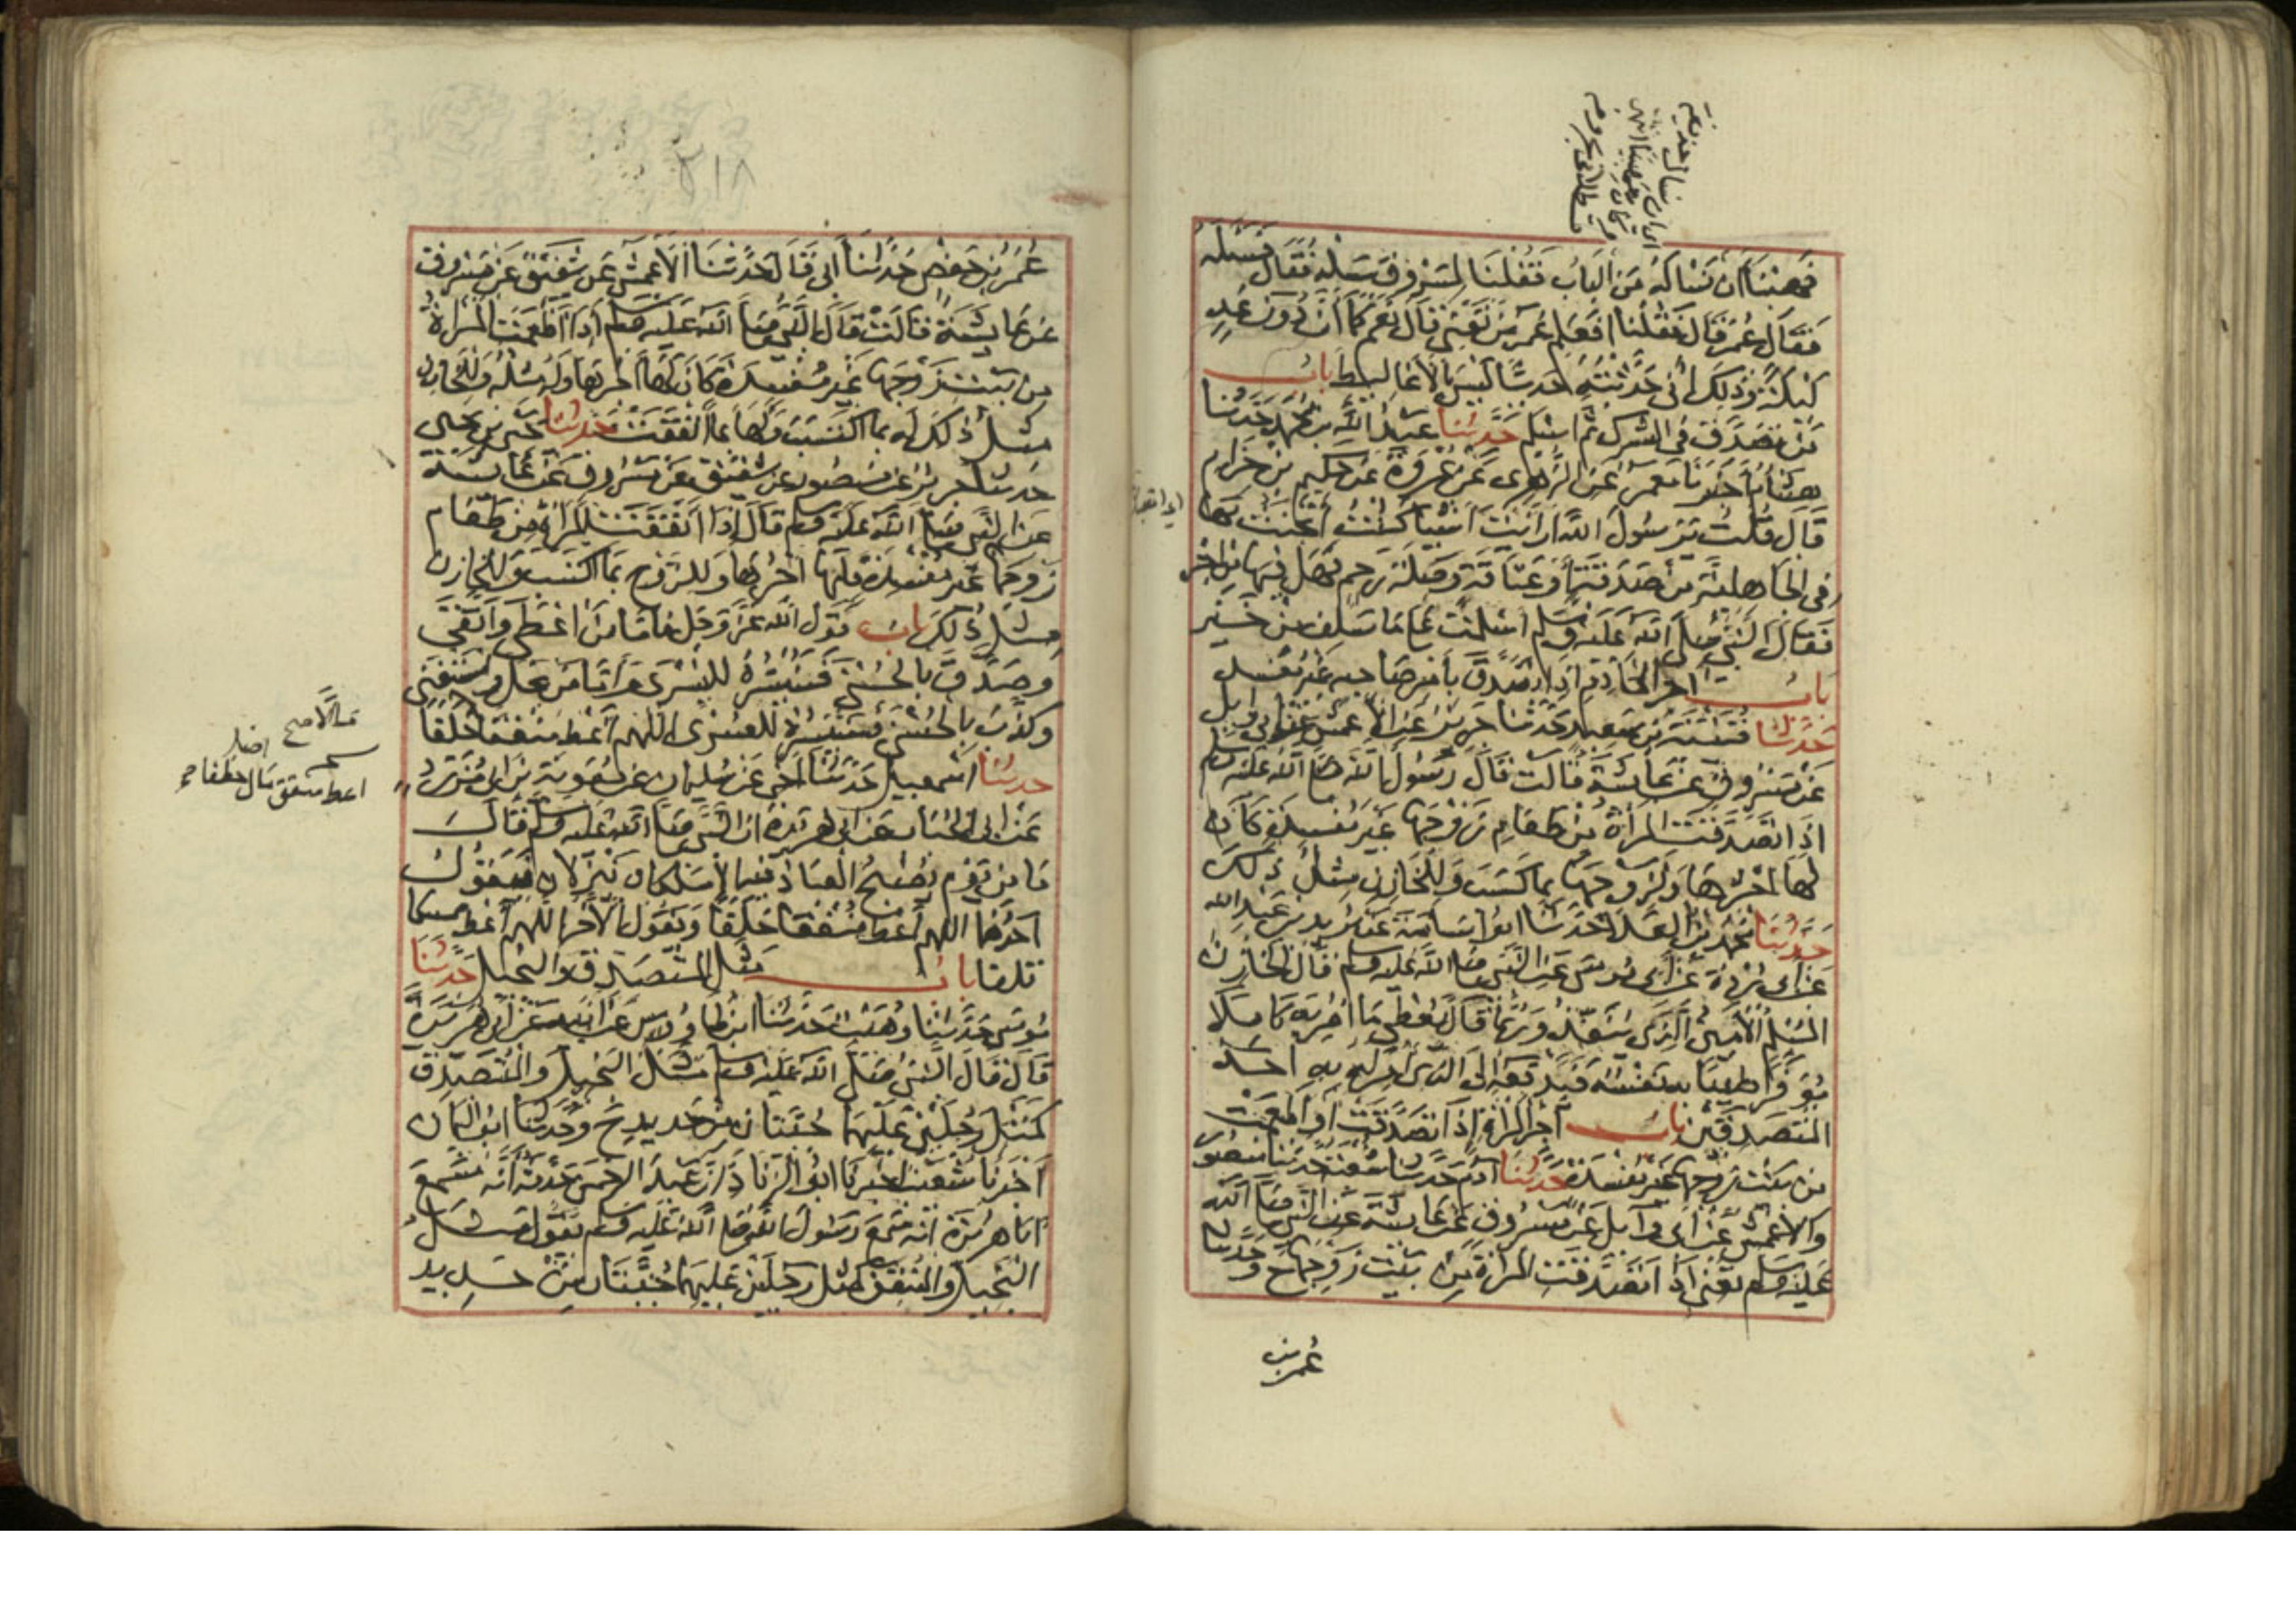 فهبنا أن نساله من الباب فقلنا لمسروق سله فقال فسئله
فقال عمر قال فقلنا افعلم عمر من تعني قال نعم كما أن دون غد
ليلة وذلك أني حدثته حديثا ليس بالأغاليط باب
من تصدق في الشرك ثم اسلم حدثنا عبد الله بن محمد حدثنا
هشام أخبرنا معمر عن الزهري عن عروة عن حكيم بن حزام
قال قلت يرسول الله ارايت اشيا كنت أتحنث بها
في الجاهلية من صدقة أو عتاقة وصلة رحم فهل فيها من اجر
فقال النبي صلى الله عليه وسلم اسلمت على ما سلف من خير
باب اجر الخادم اذا تصدق بأمر صاحبه غير مفسد
حدثنا قتيبة بن سعيد حدثنا جرير عن الأعمش عن ابي وايل
عن مسروق عن عائشة قالت قال رسول الله صلى الله عليه وسلم
اذا تصدقت المرأة من طعام زوجها غير مفسدة كان
لها اجرها ولزوجها بما كسب وللخازن مثل ذلك
حدثنا محمد بن العلا حدثنا ابو اسامة عن بريد بن عبد الله
عن ابي بردة عن ابي موسى عن النبي صلى الله عليه وسلم قال الخازن
المسلم الأمين الذي ينفذ وربما قال يعطي ما امر به كاملا
موفرا طيبا به نفسه فيدفعه الى الذي امر له به احد
المتصدقين باب أجر المرأة إذا تصدقت أو أطعمت
من بيت زوجها غير مفسدة حدثنا آدم حدثنا شعبة حدثنا منصور
والأعمش عن أبي وايل عن مسروق عن عائشة عن النبي صلى الله
عليه وسلم تعني اذا تصدقت المرأة من بيت زوجها ح وحدثنا
عمر بن
٢١٨
عمر بن حفص حدثنا أبي قال حدثنا الأعمش عن شقيق عن مسروق
عن عايشة قالت قال النبي صلى الله عليه وسلم إذا أطعمت المرأة
من بيت زوجها غير مفسدة كان لها أجرها وله مثله وللخازن
مثل ذلك له بما اكتسب ولها بما انفقت حدثنا يحيى بن يحيى
حدثنا جرير عن منصور عن شقيق عن مسروق عن عائشة
عن النبي صلى الله عليه وسلم قال إذا انفقت المرأة من طعام
زوجها غير مفسدة فلها اجرها وللزوج بما اكتسب وللخازن
مثل ذلك باب قول الله عز وجل فاما من اعطى واتقى
وصدق بالحسنى فسنيسره لليسرى واما من بخل واستغنى
وكذب بالحسنى فسنيسره للعسرى اللهم أعط منفقا خلفا
حدثنا اسمعيل حدثنا اخي عن سليمان عن معوية بن ابي مزرد
عن أبي الحباب عن ابي هريرة ان النبي صلى الله عليه وسلم قال
ما من يوم يصبح العباد فيه الا ملكان ينزلان فيقول
احدهما اللهم أعط منفقا خلفا ويقول الآخر اللهم أعط ممسكا
تلفا باب مثل المتصدق والبخيل حدثنا
موسى حدثنا وهيب حدثنا ابن طاوس عن أبيه عن أبي هريرة
قال قال النبي صلى الله عليه وسلم مثل البخيل والمتصدق
كمثل رجلين عليهما جبتان من حديد ح وحدثنا ابو اليمان
أخبرنا شعيب اخبرنا ابو الزناد ان عبد الرحمن حدثه أنه سمع
أبا هريرة انه سمع رسول الله صلى الله عليه وسلم يقول مثل
البخيل والمنفق كمثل رجلين عليهما جبتان من حديد
اعط منفق مال خلفا